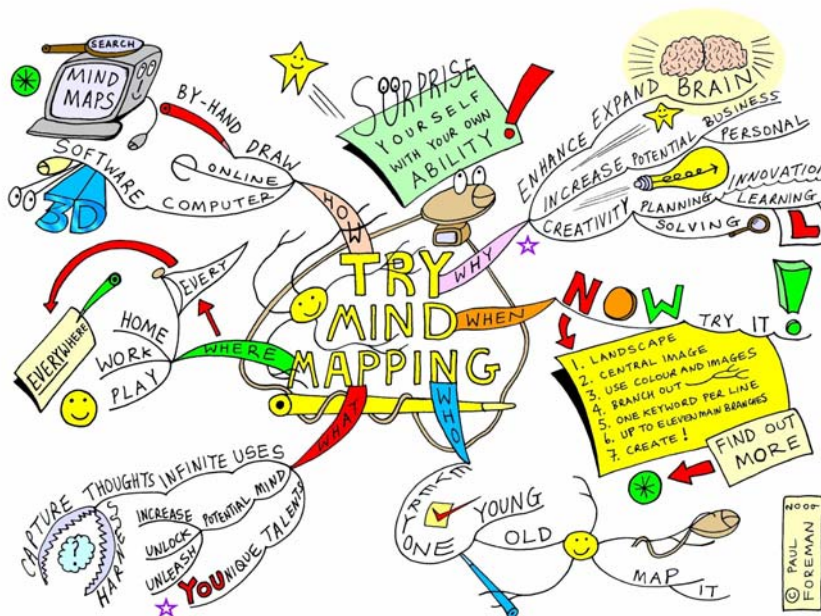 TRY
MIND
MAPPING
HOW
BY-HAND DRAW
ONLINE
COMPUTER
SOFTWARE
3D
SEARCH
MIND
MAPS
SURPRISE
YOURSELF
WITH YOUR OWN
ABILITY!
WHY
ENHANCE EXPAND BRAIN
INCREASE POTENTIAL BUSINESS
PERSONAL
CREATIVITY PLANNING INNOVATION
LEARNING
SOLVING
L
WHEN
NOW
TRY IT!
1. LANDSCAPE
2. CENTRAL IMAGE
3. USE COLOUR AND IMAGES
4. BRANCH OUT
5. ONE KEYWORD PER LINE
6. UP TO ELEVEN MAIN BRANCHES
7. CREATE!
FIND OUT
MORE
WHO
EVERYONE
YOUNG
OLD
MAP IT
WHAT
INFINITE USES
CAPTURE THOUGHTS
HARNESS
?
POTENTIAL MIND
INCREASE
UNLOCK
UNLEASH
YOUNIQUE TALENTS
WHERE
EVERY
EVERYWHERE
HOME
WORK
PLAY
© PAUL
FOREMAN
2009